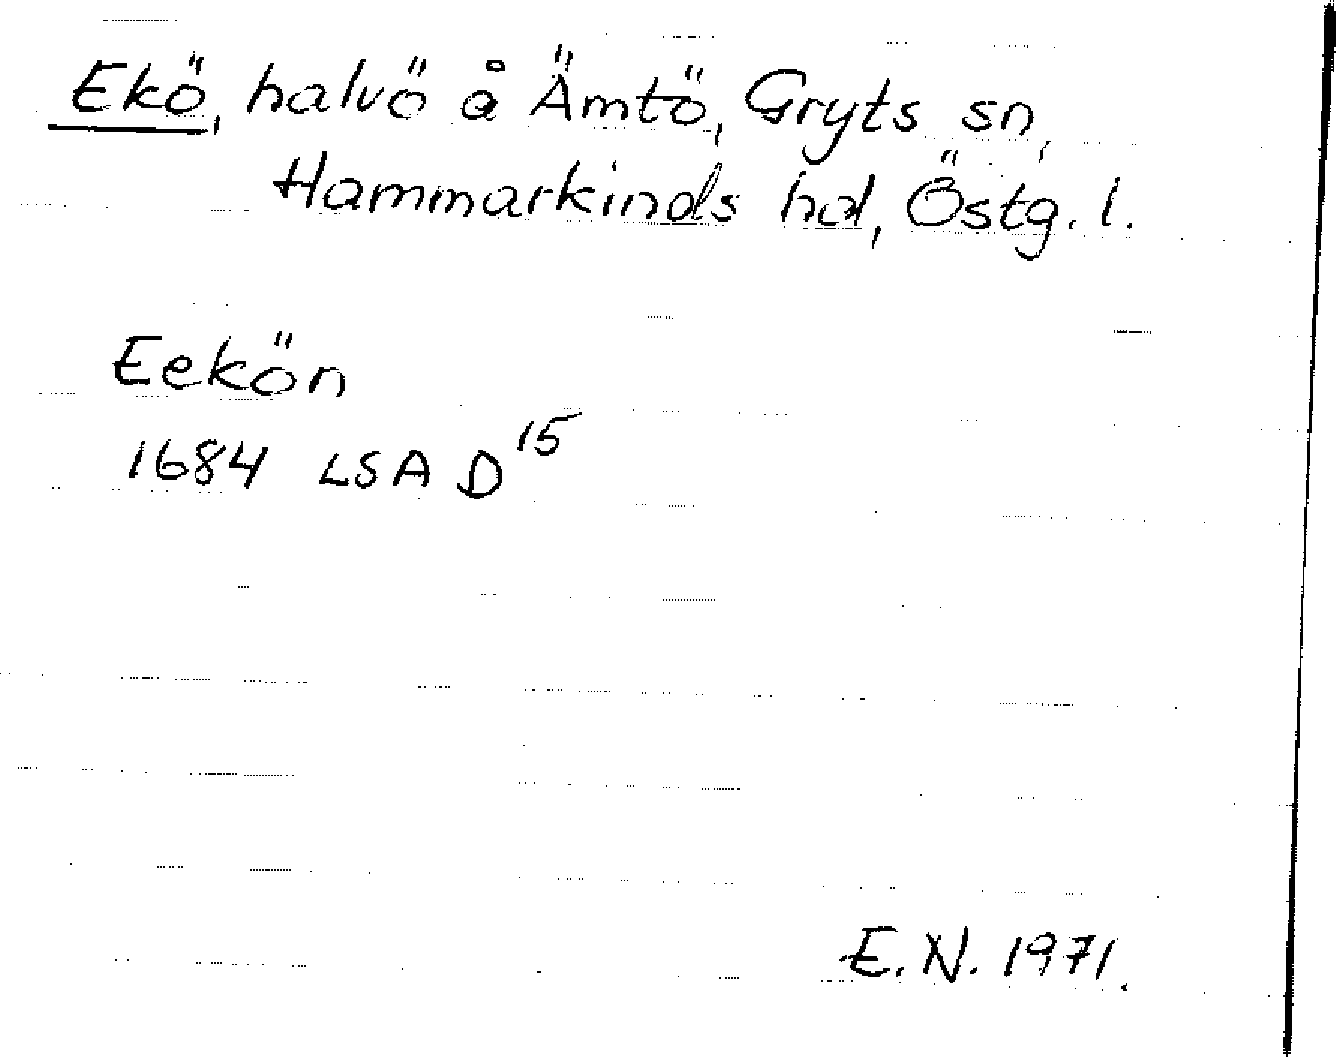 Ekö, halvö å Ämtö, Gryts sn,
Hammarkinds hd, Östg. l.
Eekön
1684 LSA D¹⁵
E. N. 1971.